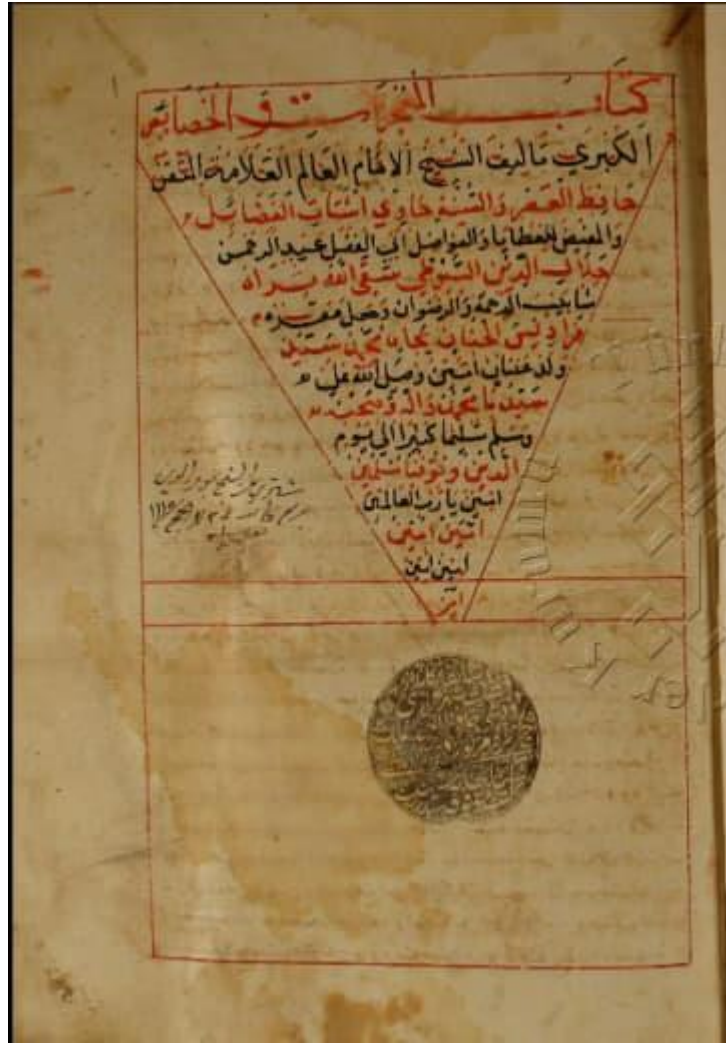 كتاب المعجزات والخصائص
الكبرى تاليف الشيخ الامام العالم العلامة المتقن
حافظ العصر والسنة حاوي اشتات الفضائل
والمفيض للعطايا والفواضل ابي الفضل عبد الرحمن
جلال الدين السيوطي سقى الله ثراه
شابيب الرحمة والرضوان وجعل مقره
فراديس الجنان بجاه محمد سيد
ولد عدنان امين وصلى الله على
سيدنا محمد واله وصحبه
وسلم تسليما كثيرا الى يوم
الدين وتوفنا مسلمين
امين يارب العالمين
امين امين
امين امين
امين